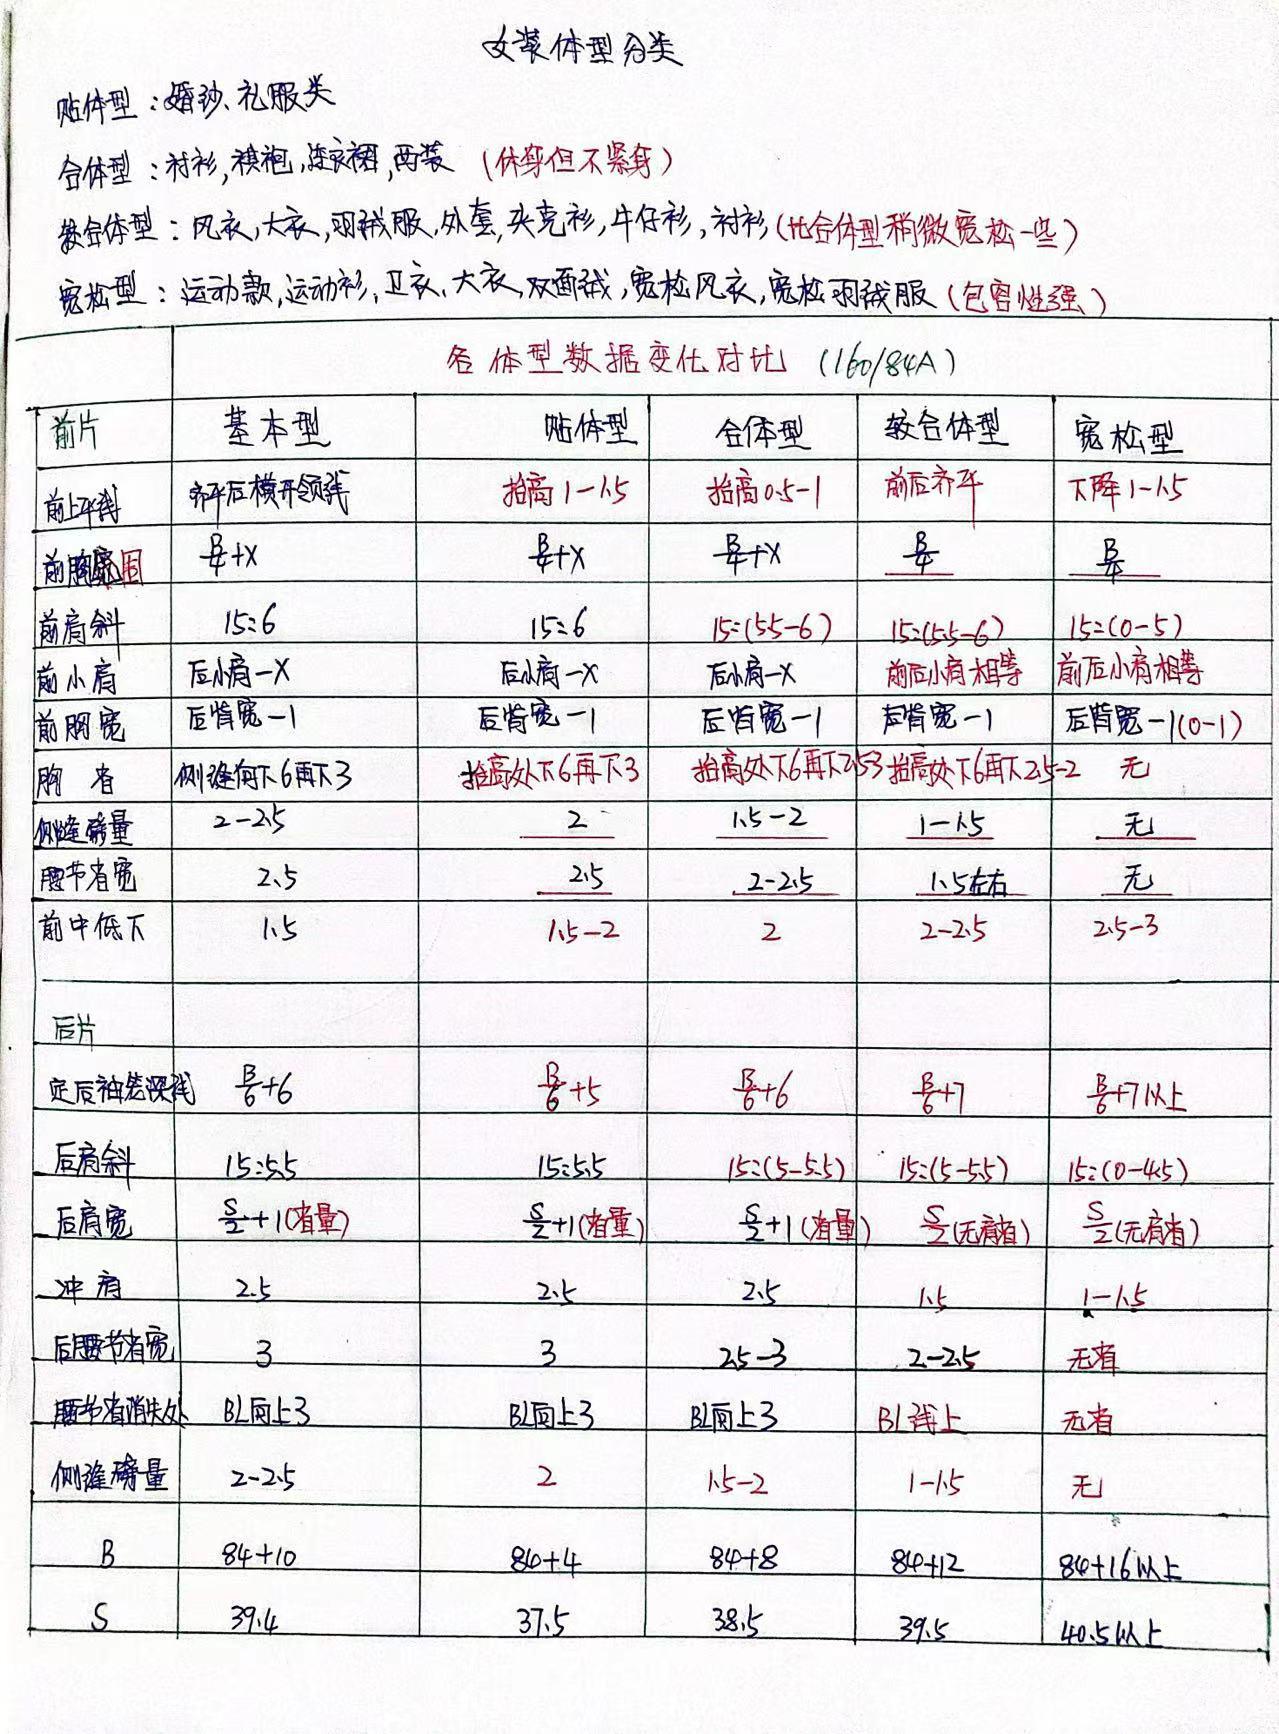 女装体型分类
贴体型：婚纱、礼服类
合体型：衬衫,旗袍,连衣裙,西装（休身但不紧身）
较合体型：风衣,大衣,羽绒服,外套,夹克衫,牛仔衫,衬衫(比合体型稍微宽松一些)
宽松型：运动款,运动衫,卫衣、大衣,双面绒,宽松风衣,宽松羽绒服(包容性强)
各体型数据变化对比 (160/84A)
前片 基本型 贴体型 合体型 较合体型 宽松型
前上平线 齐平后横开领线 抬高1-1.5 抬高0.5-1 前后齐平 下降1-1.5
前胸围 B/4+X B/4+X B/4+X B/4 B/4
前肩斜 15:6 15:6 15:(5.5-6) 15:(5.5-6) 15:(0-5)
前小肩 后小肩-X 后小肩-X 后小肩-X 前后小肩相等 前后小肩相等
前胸宽 后背宽-1 后背宽-1 后背宽-1 后背宽-1 后背宽-1(0-1)
胸省 侧缝向下6再下3 抬高处下6再下3 抬高处下6再下2.5-3 抬高处下6再下2.5-2 无
侧缝劈量 2-2.5 2 1.5-2 1-1.5 无
腰节省宽 2.5 2.5 2-2.5 1.5左右 无
前中低下 1.5 1.5-2 2 2-2.5 2.5-3
后片
定后袖笼深线 B/6+6 B/6+5 B/6+6 B/6+7 B/6+7以上
后肩斜 15:5.5 15:5.5 15:(5-5.5) 15:(5-5.5) 15:(0-4.5)
后肩宽 S/2+1(省量) S/2+1(省量) S/2+1(省量) S/2(无肩省) S/2(无肩省)
冲肩 2.5 2.5 2.5 1.5 1-1.5
后腰节省宽 3 3 2.5-3 2-2.5 无省
腰节省消失处 BL向上3 BL向上3 BL向上3 BL线上 无省
侧缝劈量 2-2.5 2 1.5-2 1-1.5 无
B 84+10 84+4 84+8 84+12 84+16以上
S 39.4 37.5 38.5 39.5 40.5以上